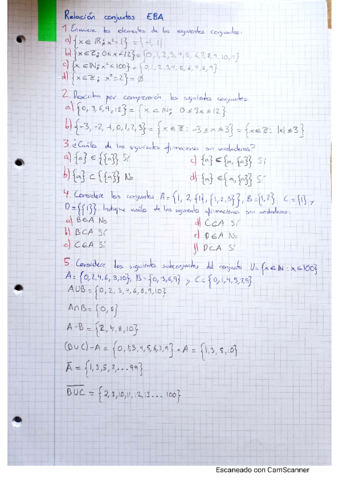 Relación conjuntos EBA
1. Enumere los elementos de los siguientes conjuntos:
a) {x ∈ ℝ: x² = 1} = {-1, 1}
b) {x ∈ ℤ: 0 ≤ x < 12} = {0, 1, 2, 3, 4, 5, 6, 7, 8, 9, 10, 11}
c) {x ∈ ℕ: x² < 100} = {0, 1, 2, 3, 4, 5, 6, 7, 8, 9}
d) {x ∈ ℤ: x² = 2} = ∅
2. Describa por comprensión los siguientes conjuntos:
a) {0, 3, 6, 9, 12} = {x ∈ : 0 ≤ x ≤ 12}
b) {-3, -2, -1, 0, 1, 2, 3} = {x ∈ ℤ: -3 ≤ x ≤ 3} = {x ∈ ℤ: |x| ≤ 3}
3. ¿Cuáles de las siguientes afirmaciones son verdaderas?
a) {a} ∈ {{a}} Sí
c) {a} ∈ {a, {a}} Sí
b) {a} ⊂ {{a}} No
d) {a} ⊂ {a, {a}} Sí
4. Considere los conjuntos A = {1, 2, {1}, {1, 2, 3}}, B = {1, 2}, C = {1} y
D = {{1}}. Indique cuáles de las siguientes afirmaciones son verdaderas:
a) B ∈ A No
d) C ⊂ A Sí
b) B ⊂ A Sí
e) D ∈ A No
c) C ∈ A Sí
f) D ⊂ A Sí
5. Considere los siguientes subconjuntos del conjunto U = {x ∈ ℕ: x ≤ 100}
A = {0, 2, 4, 6, 8, 10}, B = {0, 3, 6, 9} y C = {0, 1, 4, 5, 7, 9}
A∪B = {0, 2, 3, 4, 6, 8, 9, 10}
A∩B = {0, 6}
A-B = {2, 4, 8, 10}
(B∪C)-A =
Ā = {1, 3, 5, 7, ... 99}
B∪C = {2, 8, 10, 11, 12, 13 ... 100}
Escaneado con CamScanner